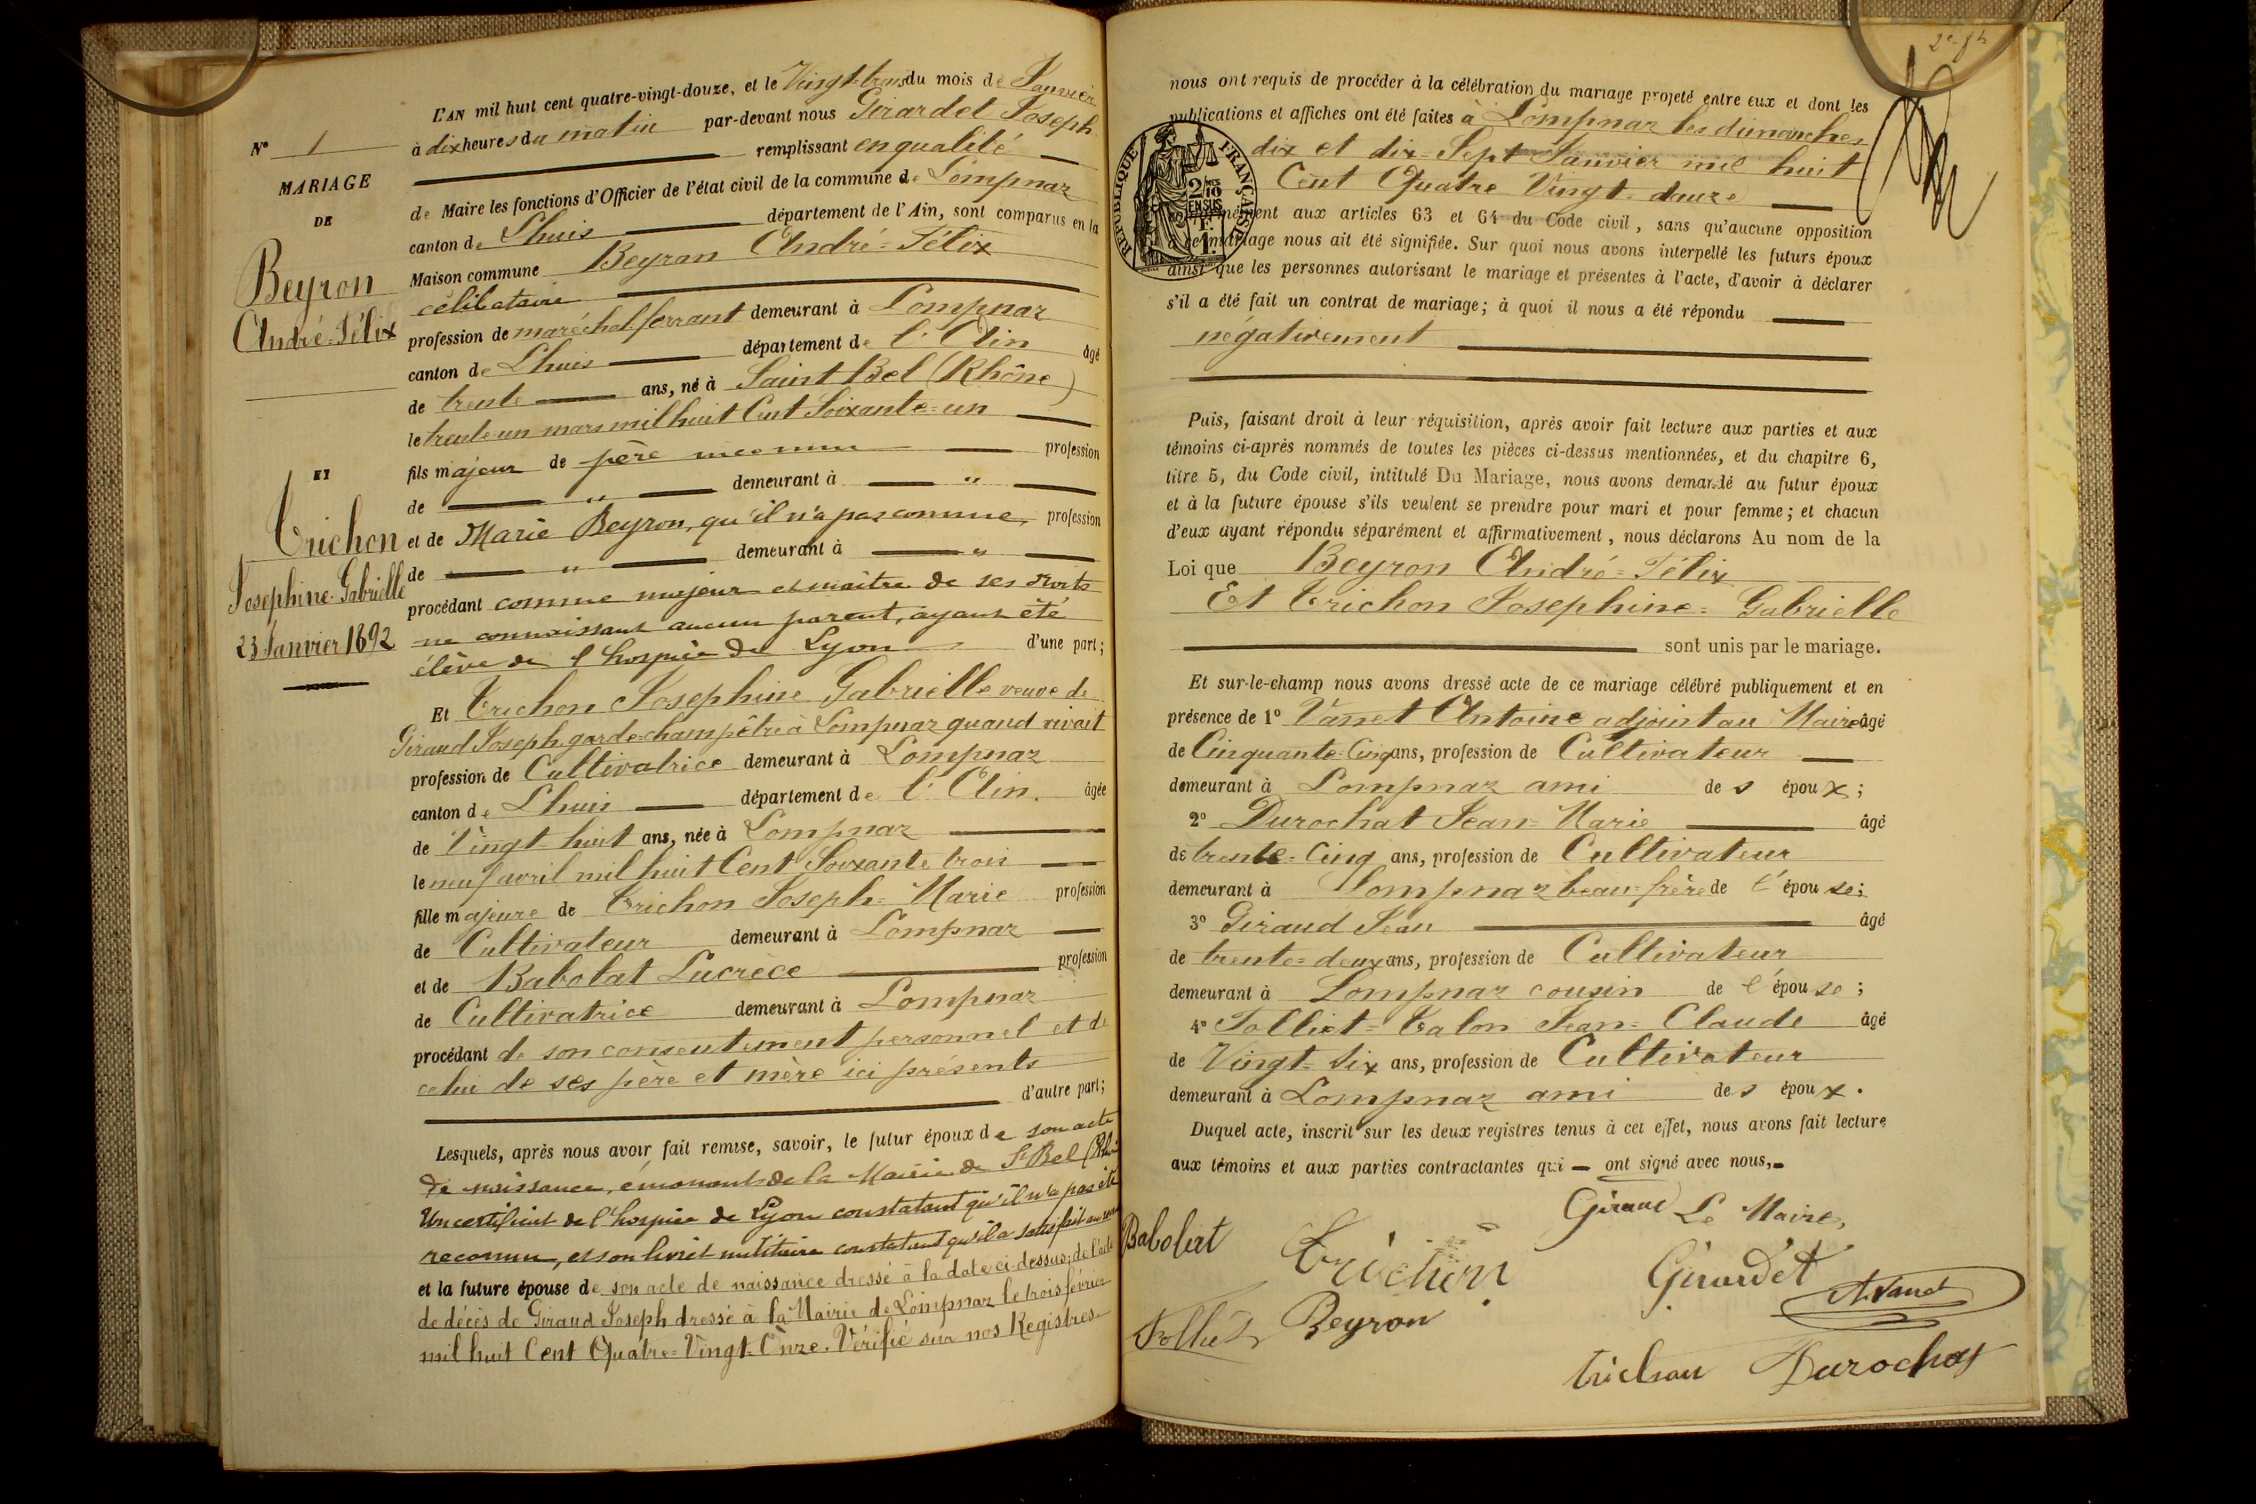 N° 1
MARIAGE
DE
Beyron
André-Félix
ET
Trichon
Josephine-Gabrielle
23 Janvier 1892
L'AN mil huit cent quatre-vingt-douze, et le Vingt-trois du mois de Janvier
à dix heures du matin par-devant nous Girardet Joseph
remplissant en qualité
de Maire les fonctions d'Officier de l'état civil de la commune de Lompnaz
canton de Lhuis département de l'Ain, sont comparus en la
Maison commune Beyron André-Félix
célibataire
profession de maréchal ferrant demeurant à Lompnaz
canton de Lhuis département de l'Ain âgé
de trente ans, né à Saint Bel (Rhône)
le trente un mars mil huit Cent Soixante-un
fils majeur de père inconnu profession
de " demeurant à "
et de Marie Beyron, qu'il n'a pas connue, profession
de " demeurant à "
procédant comme majeur et maître de ses droits
ne connaissant aucun parent, ayant été
élève de l'hospice de Lyon d'une part;
Et Trichon Josephine Gabrielle veuve de
Giraud Joseph garde-champêtre à Lompnaz quand vivait
profession de Cultivatrice demeurant à Lompnaz
canton de Lhuis département de l'Ain. âgée
de Vingt huit ans, née à Lompnaz
le neuf avril mil huit Cent Soixante trois
fille majeure de Trichon Joseph-Marie profession
de Cultivateur demeurant à Lompnaz
et de Babolat Lucrèce profession
de Cultivatrice demeurant à Lompnaz
procédant de son consentement personnel et de
celui de ses père et mère ici présents
d'autre part;
Lesquels, après nous avoir fait remise, savoir, le futur époux de son acte
de naissance, émanant de la Mairie de St Bel
Un certificat de l'hospice de Lyon constatant qu'il n'a pas été
reconnu, et son livret militaire constatant qu'il a satisfait
et la future épouse de son acte de naissance dressé à la date ci-dessus; de l'acte
de décès de Giraud Joseph dressé à la Mairie de Lompnaz le trois février
mil huit Cent Quatre-Vingt-Onze. Vérifié sur nos Registres
nous ont requis de procéder à la célébration du mariage projeté entre eux et dont les
publications et affiches ont été faites à Lompnaz les dimanches
dix et dix-Sept Janvier mil huit
Cent Quatre Vingt-douze
RÉPUBLIQUE FRANÇAISE
2/10 EN SUS
1F.
conformément aux articles 63 et 64 du Code civil, sans qu'aucune opposition
à ce mariage nous ait été signifiée. Sur quoi nous avons interpellé les futurs époux
ainsi que les personnes autorisant le mariage et présentes à l'acte, d'avoir à déclarer
s'il a été fait un contrat de mariage; à quoi il nous a été répondu
négativement
Puis, faisant droit à leur réquisition, après avoir fait lecture aux parties et aux
témoins ci-après nommés de toutes les pièces ci-dessus mentionnées, et du chapitre 6,
titre 5, du Code civil, intitulé Du Mariage, nous avons demandé au futur époux
et à la future épouse s'ils veulent se prendre pour mari et pour femme; et chacun
d'eux ayant répondu séparément et affirmativement, nous déclarons Au nom de la
Loi que Beyron André-Félix
Et Trichon Josephine-Gabrielle
sont unis par le mariage.
Et sur-le-champ nous avons dressé acte de ce mariage célébré publiquement et en
présence de 1° Vanet Antoine adjoint au Maire âgé
de Cinquante-Cinq ans, profession de Cultivateur
demeurant à Lompnaz ami des époux;
2° Durochat Jean-Marie âgé
de trente-Cinq ans, profession de Cultivateur
demeurant à Lompnaz beau-frère de l'épouse;
3° Giraud Jean âgé
de trente-deux ans, profession de Cultivateur
demeurant à Lompnaz cousin de l'épouse;
4° Tolliet-Talon Jean-Claude âgé
de Vingt-Six ans, profession de Cultivateur
demeurant à Lompnaz ami des époux.
Duquel acte, inscrit sur les deux registres tenus à cet effet, nous avons fait lecture
aux témoins et aux parties contractantes qui ont signé avec nous,
Giraud Le Maire,
Babolat Trichon Girardet
A. Vanet
Tolliet Beyron
Trichon Durochat